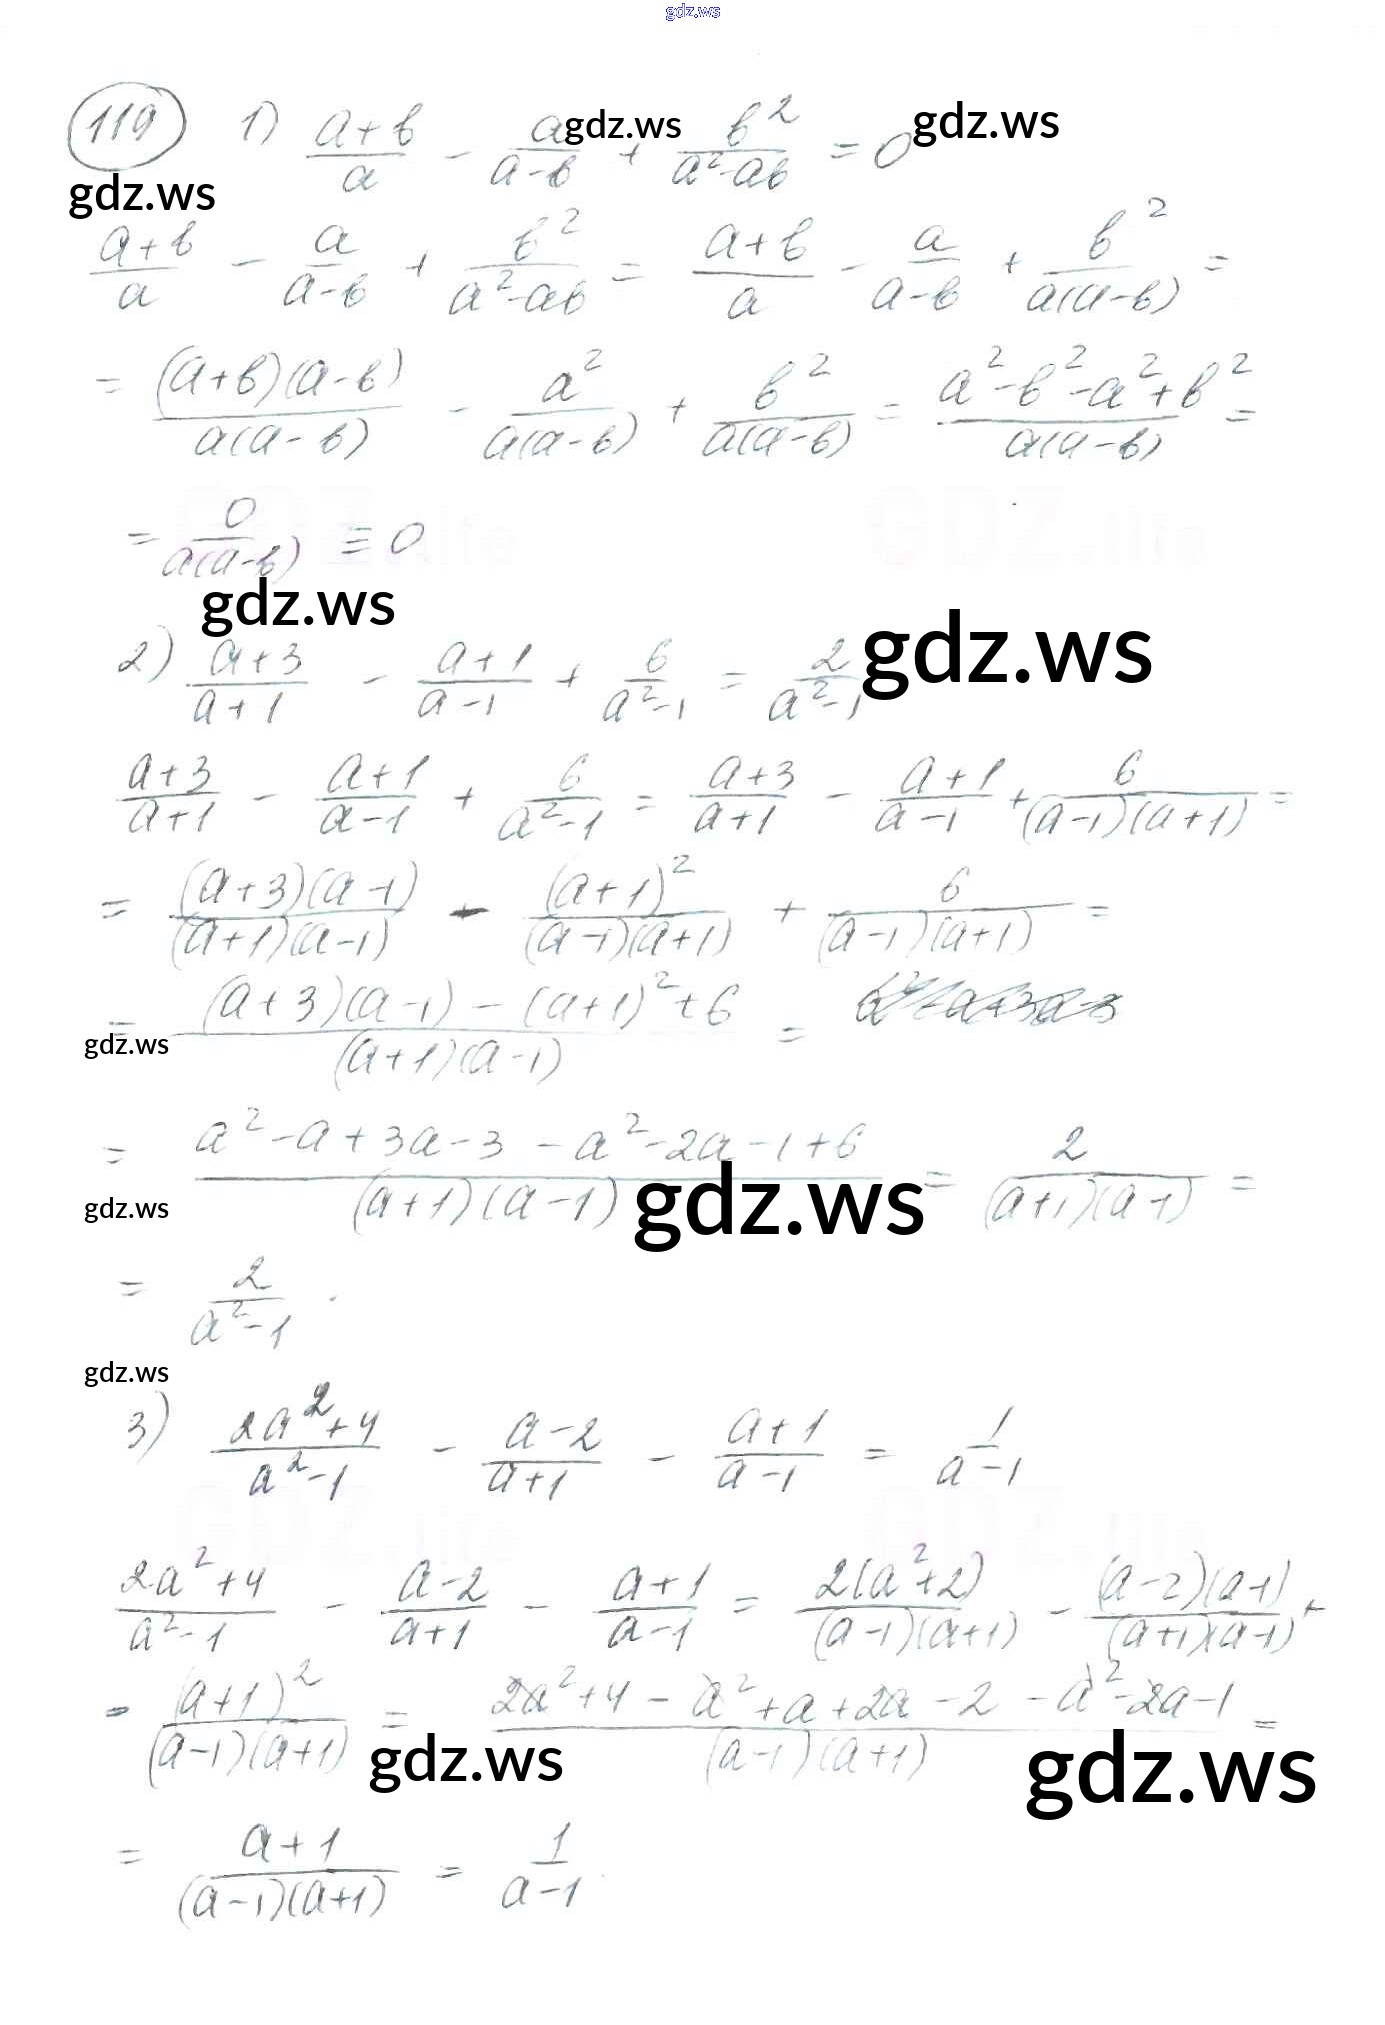 gdz.ws
119 1) (a+b)/a - a/(a-b) + b²/(a²-ab) = 0
gdz.ws gdz.ws
gdz.ws
(a+b)/a - a/(a-b) + b²/(a²-ab) = (a+b)/a - a/(a-b) + b²/(a(a-b)) =
= (a+b)(a-b)/(a(a-b)) - a²/(a(a-b)) + b²/(a(a-b)) = (a²-b²-a²+b²)/(a(a-b)) =
= 0/(a(a-b)) ≡ 0
GDZ.life GDZ.life
gdz.ws gdz.ws
2) (a+3)/(a+1) - (a+1)/(a-1) + 6/(a²-1) = 2/(a²-1)
(a+3)/(a+1) - (a+1)/(a-1) + 6/(a²-1) = (a+3)/(a+1) - (a+1)/(a-1) + 6/((a-1)(a+1)) =
= (a+3)(a-1)/((a+1)(a-1)) - (a+1)²/((a-1)(a+1)) + 6/((a-1)(a+1)) =
= ((a+3)(a-1) - (a+1)² + 6)/((a+1)(a-1)) =
gdz.ws
= (a²-a+3a-3-a²-2a-1+6)/((a+1)(a-1)) = 2/((a+1)(a-1)) =
gdz.ws gdz.ws
= 2/(a²-1).
gdz.ws
3) (2a²+4)/(a²-1) - (a-2)/(a+1) - (a+1)/(a-1) = 1/(a-1)
GDZ.life GDZ.life
(2a²+4)/(a²-1) - (a-2)/(a+1) - (a+1)/(a-1) = 2(a²+2)/((a-1)(a+1)) - (a-2)(a-1)/((a+1)(a-1)) -
- (a+1)²/((a-1)(a+1)) = (2a²+4-a²+a+2a-2-a²-2a-1)/((a-1)(a+1)) =
gdz.ws gdz.ws
= (a+1)/((a-1)(a+1)) = 1/(a-1).